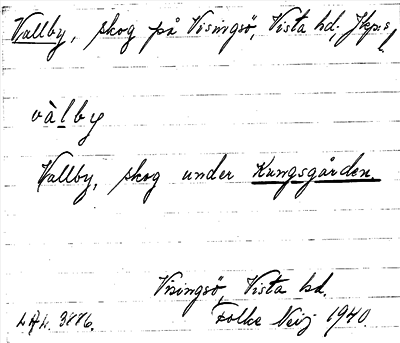 Vallby, skog på Visingsö, Vista hd, Jkps l
vàlby
Vallby, skog under Kungsgården.
Visingsö, Vista hd.
Folke Neij 1940.